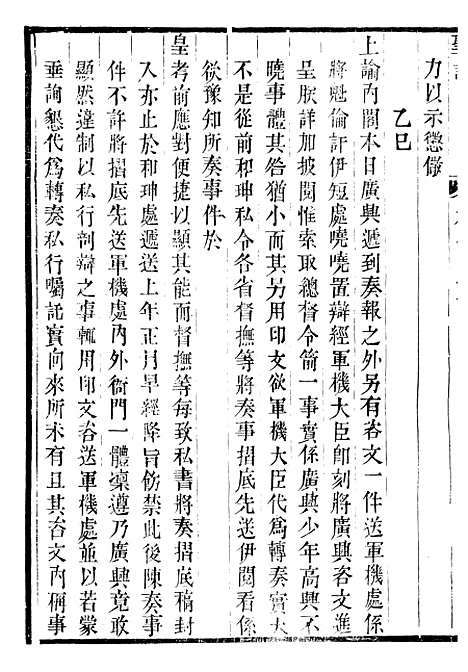 力以示懲儆
乙巳
上諭內閣本日廣興遞到奏報之外另有咨文一件送軍機處係
將魁倫訐伊短處嘵嘵置辯經軍機大臣卽刻將廣興咨文進
呈朕詳加披閱惟索取總督令箭一事實係廣興少年高興不
曉事體其咎猶小而其另用印文欲軍機大臣代爲轉奏實大
不是從前和珅私令各省督撫等將奏事摺底先送伊閱看係
欲豫知所奏事件於
皇考前應對便捷以顯其能而督撫等每致私書將奏摺底稿封
入亦止於和珅處遞送上年正月早經降旨飭禁此後陳奏事
件不許將摺底先送軍機處內外衙門一體稟遵乃廣興竟敢
顯然違制以私行剖辯之事輒用印文咨送軍機處並以若蒙
垂詢懇代爲轉奏私行囑託實向來所未有且其咨文內稱事